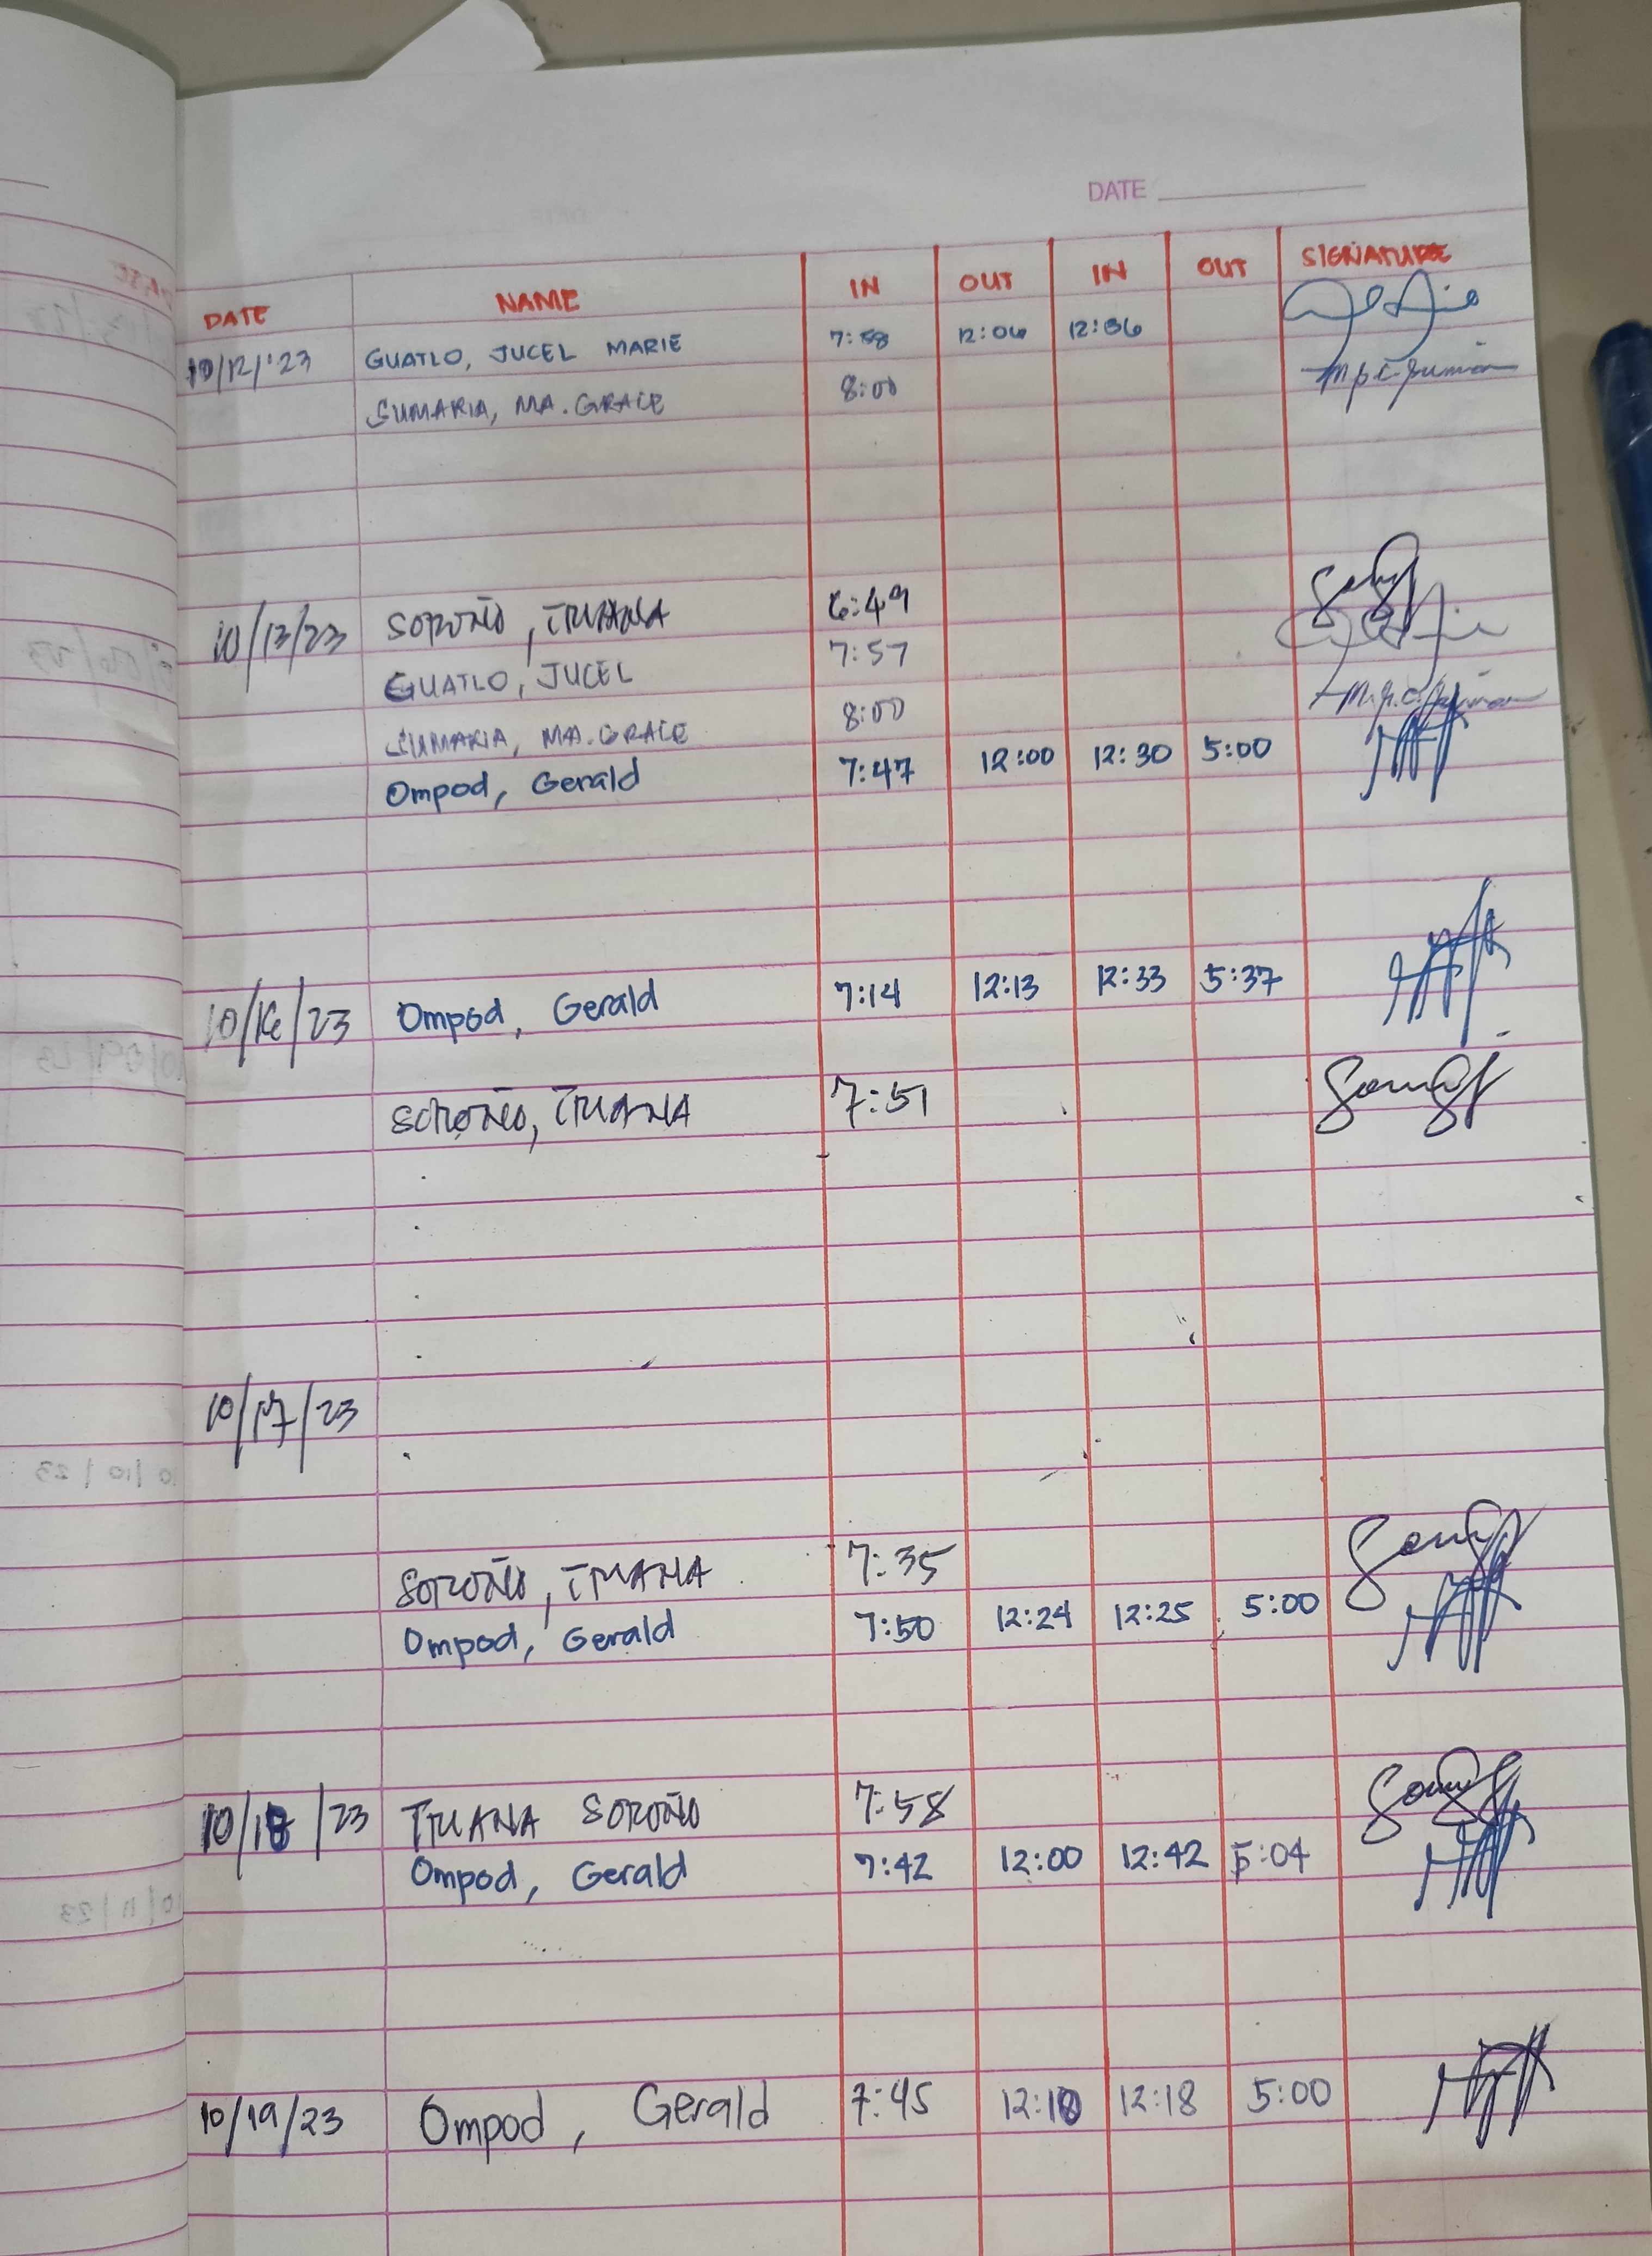 DATE
DATE NAME IN OUT IN OUT SIGNATURE
10/12/'23 GUATLO, JUCEL MARIE 7:58 12:06 12:36
SUMARIA, MA. GRACE 8:00
10/13/23 SOROÑO, 6:49
GUATLO, JUCEL 7:57
SUMARIA, MA. GRACE 8:00
Ompod, Gerald 7:47 12:00 12:30 5:00
10/16/23 Ompod, Gerald 7:14 12:13 12:33 5:37
SOROÑO, 7:51
10/17/23
SOROÑO, 7:35
Ompod, Gerald 7:50 12:24 12:25 5:00
10/18/23 SOROÑO 7:58
Ompod, Gerald 7:42 12:00 12:42 5:04
10/19/23 Ompod, Gerald 7:45 12:10 12:18 5:00